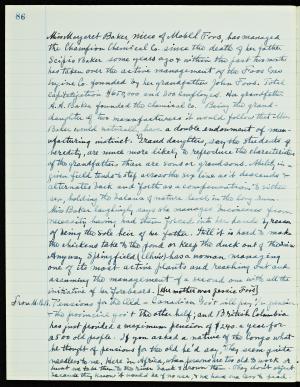 86
Miss Margaret Baker niece of Mabell Foos, has managed
the Champion Chemical Co. since the death of her father
Scipio Baker some years ago & within the past two months
has taken over the active management of the Foos Gas
Engine Co. founded by her grandfather John Foos. Total
capitalization $650,000 and 200 employees. Her grandfather
A.A. Baker founded the chemical Co. Being the grand-
daughter of two manufacturers it would follow that Miss
Baker would naturally have a double endowment of man-
ufacturing instinct. Grand daughters, say the students of
heredity, are much more likely to reproduce the characteristics
of the grandfathers than are sons or grandsons. Ability in a
given field tends to step across the sex line as it descends &
alternates back and forth as a compensation to either
sex, holding the balance of nature level in the long run.
Miss Baker laughingly says she manages businesses from
necessity having had them forced into her hands by reason
of being the sole heir of her father. Still it is hard to make
the chickens take to the pond or keep the duck out of therein
Anyway Springfield (Ohio) has a woman managing
one of its most active plants and reaching out and
assuming the management of a second one with all the
initiative of her forebears. (Her mother was Jessie Foos)
Pensions for the Old - Canadian Govt will pay ½ in pension
& the provincial govt the other half; and British Columbia
has just provided a maximum pension of $240. a year for
its 70 old people. If you asked a native of the Congo what
he thought of pensions for the old he'd say, They seem quite
needless to me. Here in Africa when parents are too old to work
hunt we take them to the river bank & drown them. They don't object
because they know it would be no use, &